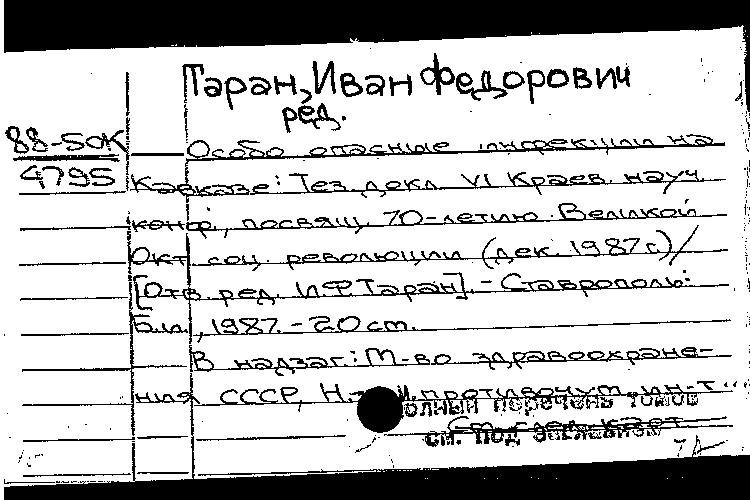 Таран, Иван Федорович
ред.
88-50К
4795
Особо опасные инфекции на
Кавказе: Тез. докл. VI Краев. науч.
конф., посвящ. 70-летию Великой
Окт. соц. революции (дек. 1987 г.) /
[Отв. ред. И.Ф. Таран]. - Ставрополь:
Б.и., 1987. - 20 см.
В надзаг.: М-во здравоохране-
ния СССР, Н.- и. противочум. ин-т
олный перечень томов
см. под заглавием